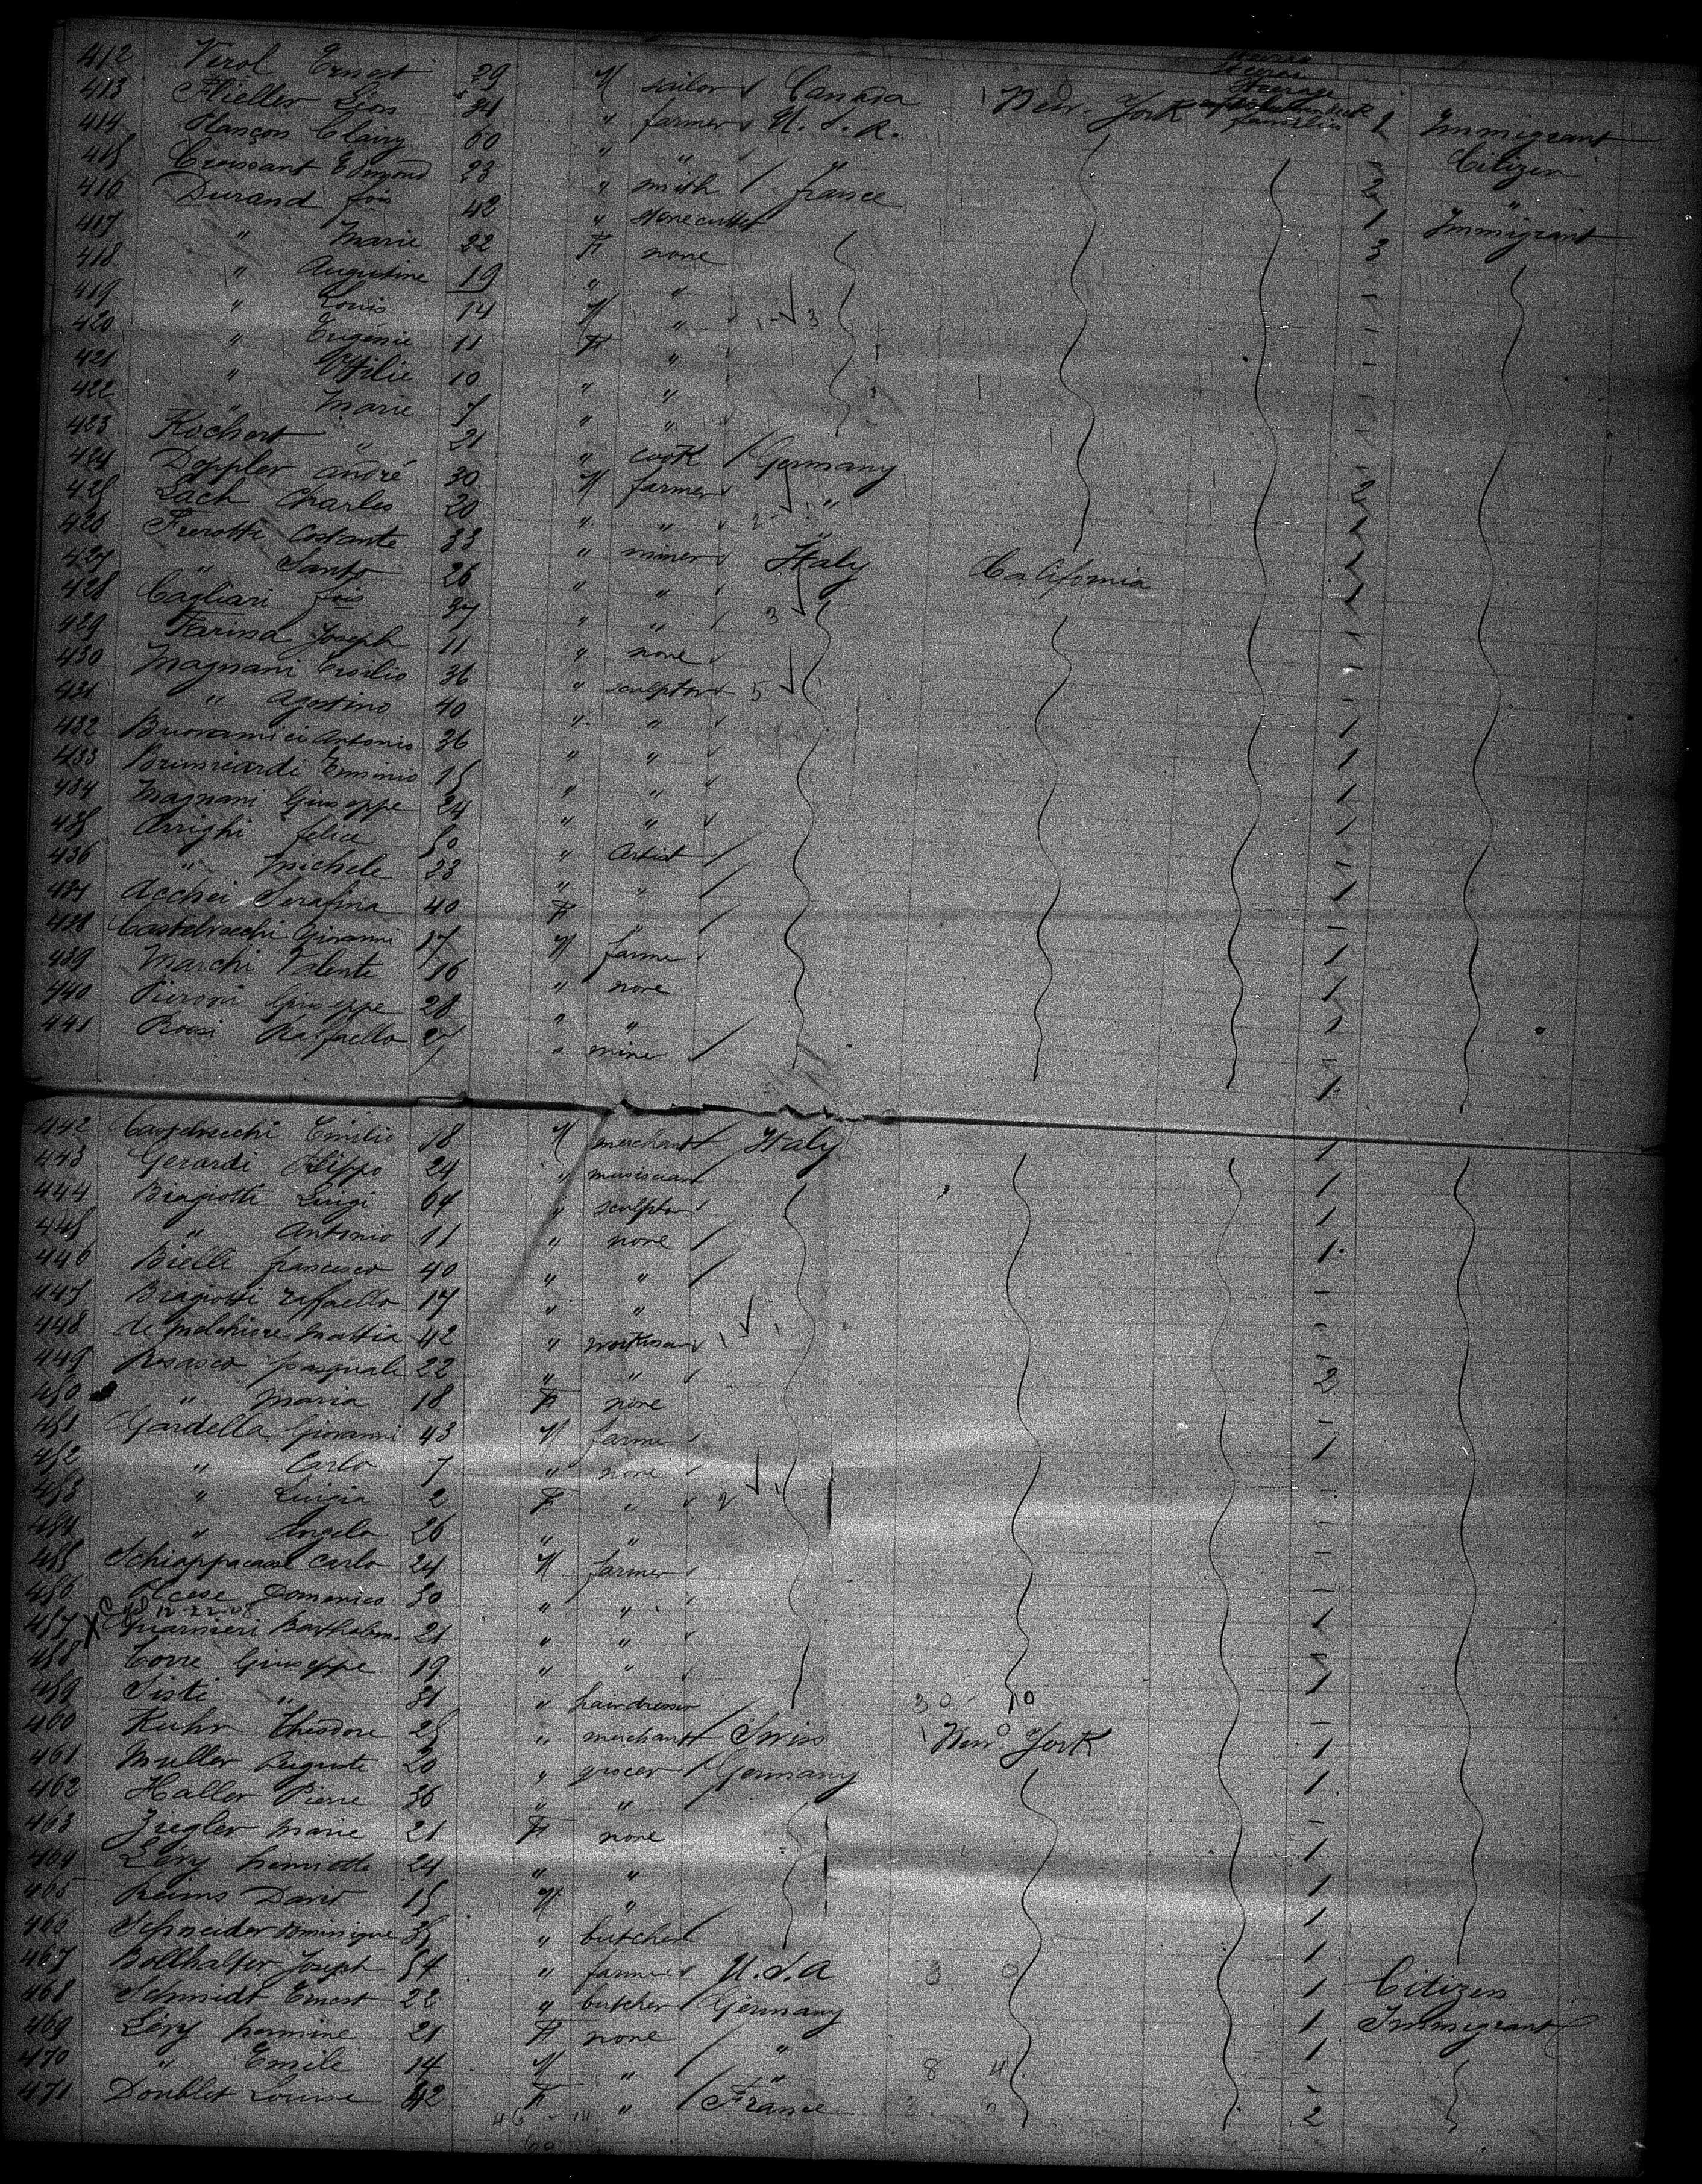 412 Virol Ernest 29 M sailor Canada New-York 1 Immigrant
413 Flieller Léon 31 " farmer U.S.A. - Citizen
414 Plançon Clairy 60 " " 2 "
415 Croissant Edmond 23 " smith France 1 Immigrant
416 Durand fois 42 " stonecutter 3
417 " Marie 22 F none -
418 " Augustine 19 " " -
419 " Louis 14 M " -
420 " Eugénie 11 F " -
421 " 10 " " -
422 " Marie 7 " " -
423 Kochert " 21 " cook Germany
424 Doppler andré 30 M farmer "
425 Lach Charles 20 " " "
426 Costante 33 " miner Italy California
427 " Santo 26 " "
428 Cagliari fois " "
429 Farina Joseph 11 " none
430 Magnani Ersilio 36 " sculptor
431 " Agostino 40 " "
432 Buonamici Antonio 36 " "
433 15 " "
434 Magnani Giuseppe 24 " "
435 Arrighi felice 50 " Artist
436 " Michele 23 " "
437 Acchei Serafina 40 F "
438 Castelvecchi Giovanni 17 M farme
439 Marchi Valente 16 " none
440 Pieroni Giuseppe 28 " "
441 Rossi Raffaello " mine 1
442 Castelvecchi Emilio 18 M merchant Italy 1
443 Gerardi 24 " musician 1
444 Biagiotti Luigi 64 " sculptor 1
445 " Antonio 11 " none 1
446 Bielli francesco 40 " " -
447 Biagiotti raffaello 17 " " -
448 de melchiore Mattia 42 " workman -
449 Rosasco pasquale 22 " " 2
450 " Maria 18 F none -
451 Gardella Giovanni 43 M farme 1
452 " Carlo 7 " none -
453 " Luigia 2 F " -
454 " Angela 26 " " -
455 Schiappacasse Carlo 24 M farmer -
456 Olcese Domenico 30 " " 1
12-22-08
457 Guarnieri Bartholom. 21 " " -
458 Torre Giuseppe 19 " " 1
459 Sisti " 31 " hairdresser -
460 Kuhn Théodore 25 " merchant Swiss New-York 1
461 Muller Auguste 20 " grocer Germany 1
462 Haller Pierre 36 " " -
463 Ziegler Marie 21 F none 1
464 Lévy henriette 24 " " 1
465 Reims David 15 M " 1
466 Schneider Dominique 35 " butcher 1
467 Bollhalter Joseph 54 " farmer U.S.A 1 Citizen
468 Schmidt Ernest 22 " butcher Germany 1 Immigrant
469 Lévy hermine 21 F none " 1
470 " Emile 14 M " " -
471 Doublet Louise 42 F " France 2